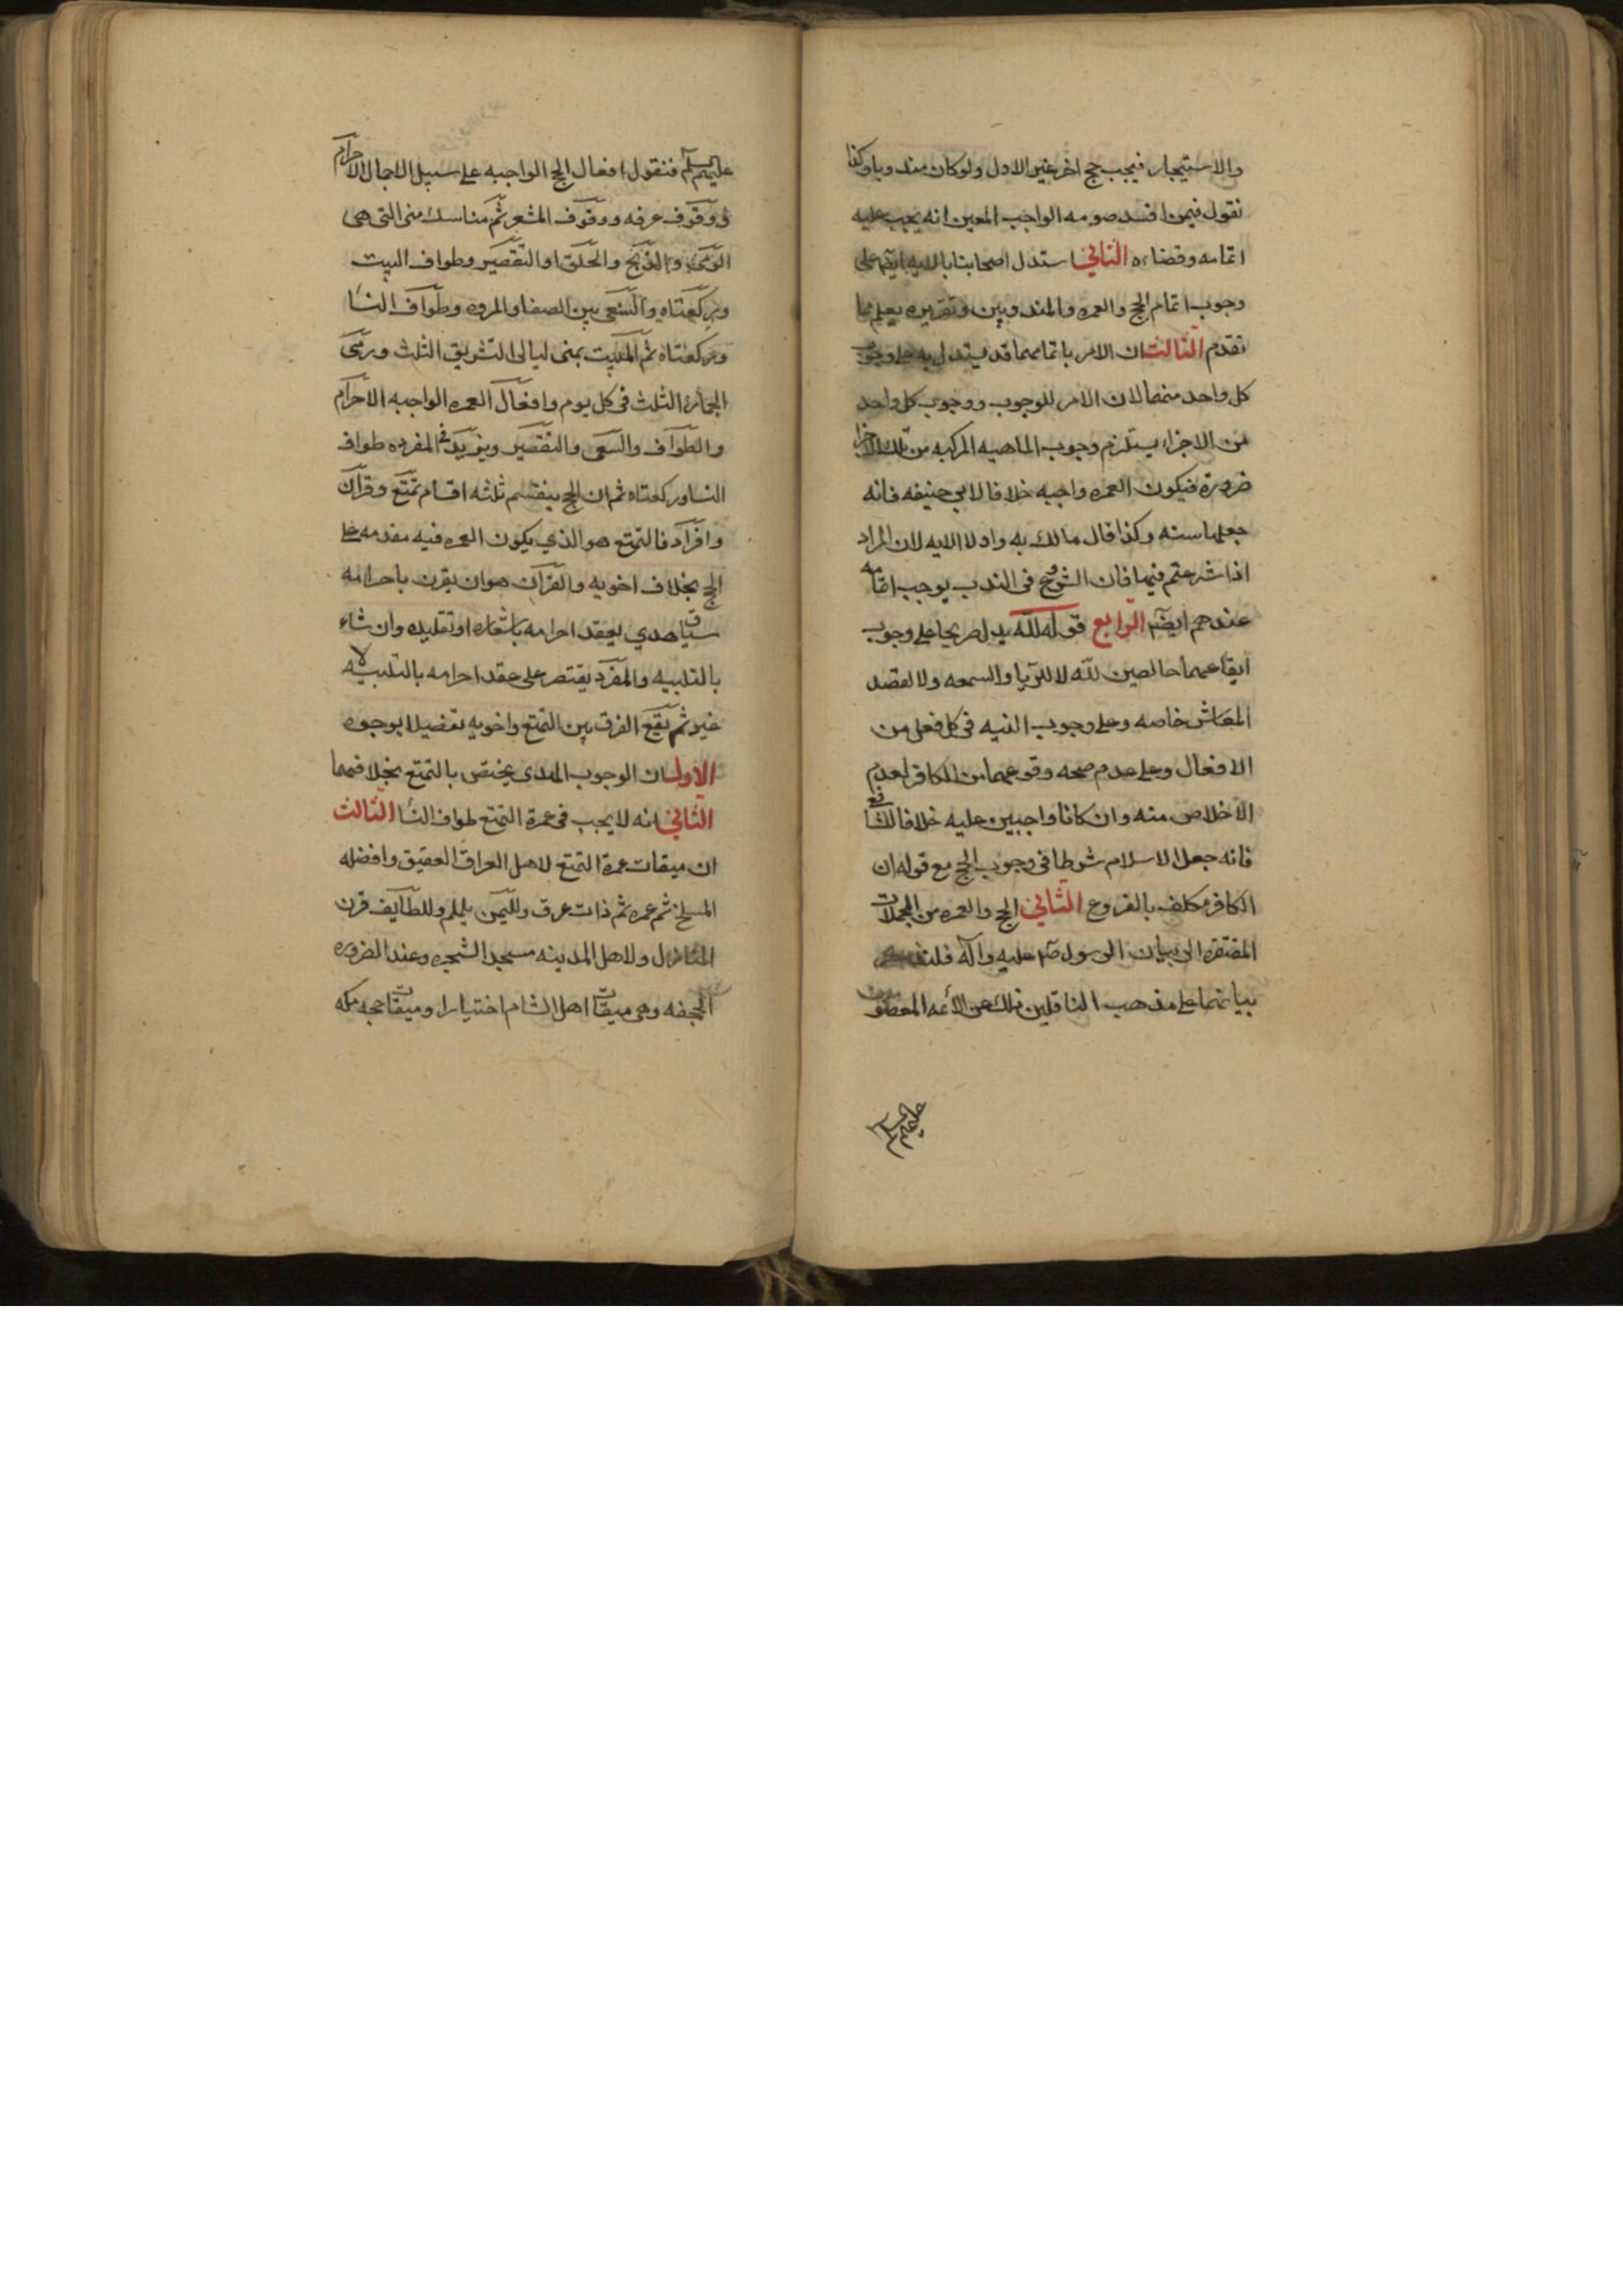 والاستيجار فيجب حج اخر غير الاول ولو كان مندوبا وكذا
نقول فيمن افسد صومه الواجب المعين انه يجب عليه
اتمامه وقضاءه الثاني استدل اصحابنا بالايه ايضا على
وجوب اتمام الحج والعمره المندوبين وتقريره يعلم مما
تقدم الثالث ان الامر باتمامهما قد يستدل به على وجوب
كل واحد منهما لان الامر للوجوب ووجوب كل واحد
من الاجزاء يستلزم وجوب الماهيه المركبه من تلك الاجزا
ضرورة فيكون العمره واجبه خلافا لابي حنيفه فانه
جعلها سنه وكذا قال مالك به واولا الايه لان المراد
اذا شرعتم فيهما فان الشروع في الندب يوجب اتمامه
عندهم ايضا الرابع قوله لله يدل صريحا على وجوب
ايقاعهما خالصين لله لا للريا والسمعه ولا لقصد
المعاش خاصه وعلى وجوب النيه في كل فعل من
الافعال وعلى عدم صحه وقوعهما من الكافر لعدم
الاخلاص منه وان كانا واجبين عليه خلافا للشافعي
فانه جعل الاسلام شرطا في وجوب الحج مع قوله ان
الكافر مكلف بالفروع الثاني الحج والعمره من المجملات
المفتقره الى بيان الرسول صلى عليه وآله فلنذكر
بيانهما على مذهب الناقلين ذلك عن الأئمه المعصومين
عليهم السلام
عليهم السلام فنقول افعال الحج الواجبه على سبيل الاجمال الاحرام
ووقوف عرفه ووقوف المشعر ثم مناسك منى التي هي
الرمي والذبح والحلق او التقصير وطواف البيت
وركعتاه والسعي بين الصفا والمروه وطواف النسا
وركعتاه ثم المبيت بمنى ليالي التشريق الثلث ورمي
الجمار الثلث في كل يوم وافعال العمره الواجبه الاحرام
والطواف والسعي والتقصير ويزيد في المفرده طواف
النسا وركعتاه ثم ان الحج ينقسم ثلثه اقسام تمتع وقران
وافراد فالتمتع هو الذي يكون العمره فيه مقدمه على
الحج بخلاف اخويه والقران هو ان يقرن باحرامه
سياق هدي يعقد احرامه باشعاره او تقليده وان شاء
بالتلبيه والمفرد يقتصر على عقد احرامه بالتلبيه لا
غير ثم يقع الفرق بين التمتع واخويه تفضيلا بوجوه
الاول ان الوجوب الهدي يختص بالتمتع بخلافهما
الثاني انه لا يجب في عمرة التمتع طواف النسا الثالث
ان ميقات عمرة التمتع لاهل العراق العقيق وافضله
المسلخ ثم غمره ثم ذات عرق ولليمن يلملم وللطايف قرن
المنازل ولاهل المدينه مسجد الشجره وعند الضروره
الجحفه وهي ميقات اهل الشام اختيارا وميقات حجه مكه